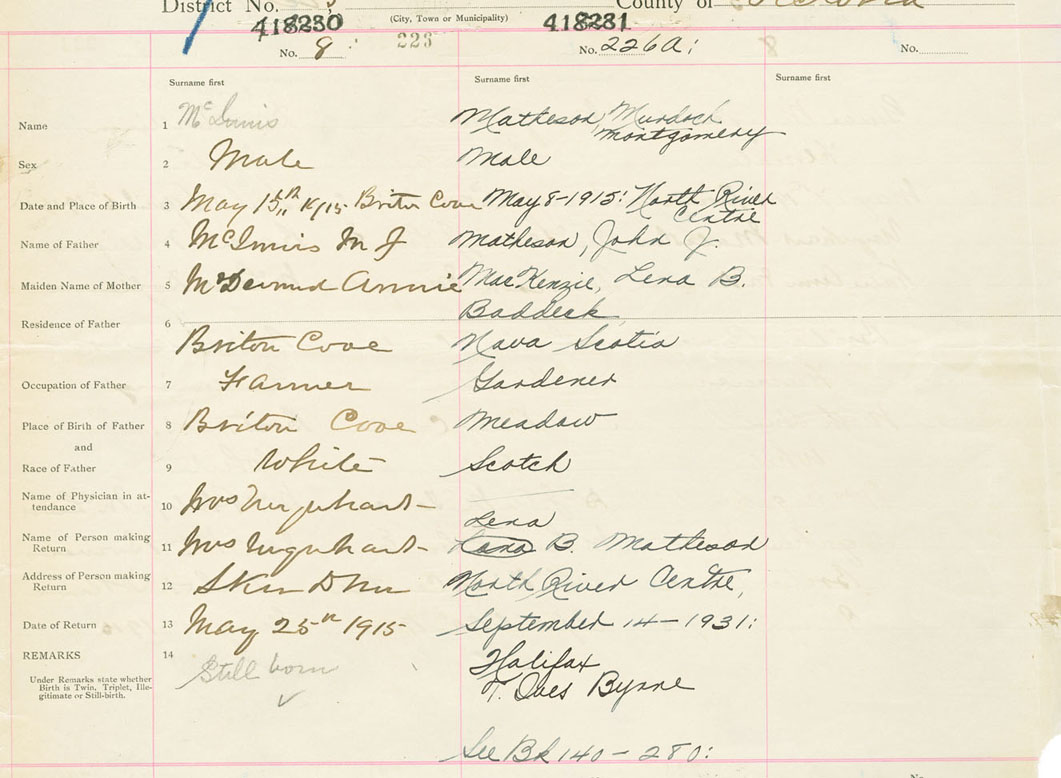 District No.
County of
418230
(City, Town or Municipality)
418231
No. 8
223
No. 226A:
No.
Surname first Surname first Surname first
Name 1 McInnis Matheson, Murdoch
Montgomery
Sex 2 Male Male
Date and Place of Birth 3 May 15th 1915 Briton Cove May 8-1915: North River
Centre
Name of Father 4 McInnis M J Matheson, John J.
Maiden Name of Mother 5 McDermid Annie MacKenzie, Lena B.
Baddeck
Residence of Father 6
Briton Cove Nova Scotia
Occupation of Father 7 Farmer Gardener
Place of Birth of Father 8 Briton Cove Meadow
and
Race of Father 9 White Scotch
Name of Physician in at-
tendance 10 Mrs Urquhart
Lena
Name of Person making
Return 11 Mrs Urquhart Lana B. Matheson
Address of Person making
Return 12 Skir Dhu North River Centre,
Date of Return 13 May 25th 1915 September 14-1931:
REMARKS 14 Still born Halifax
Under Remarks state whether
Birth is Twin, Triplet, Ille-
gitimate or Still-birth.
T. Ives Byrne
See Bk 140-280: